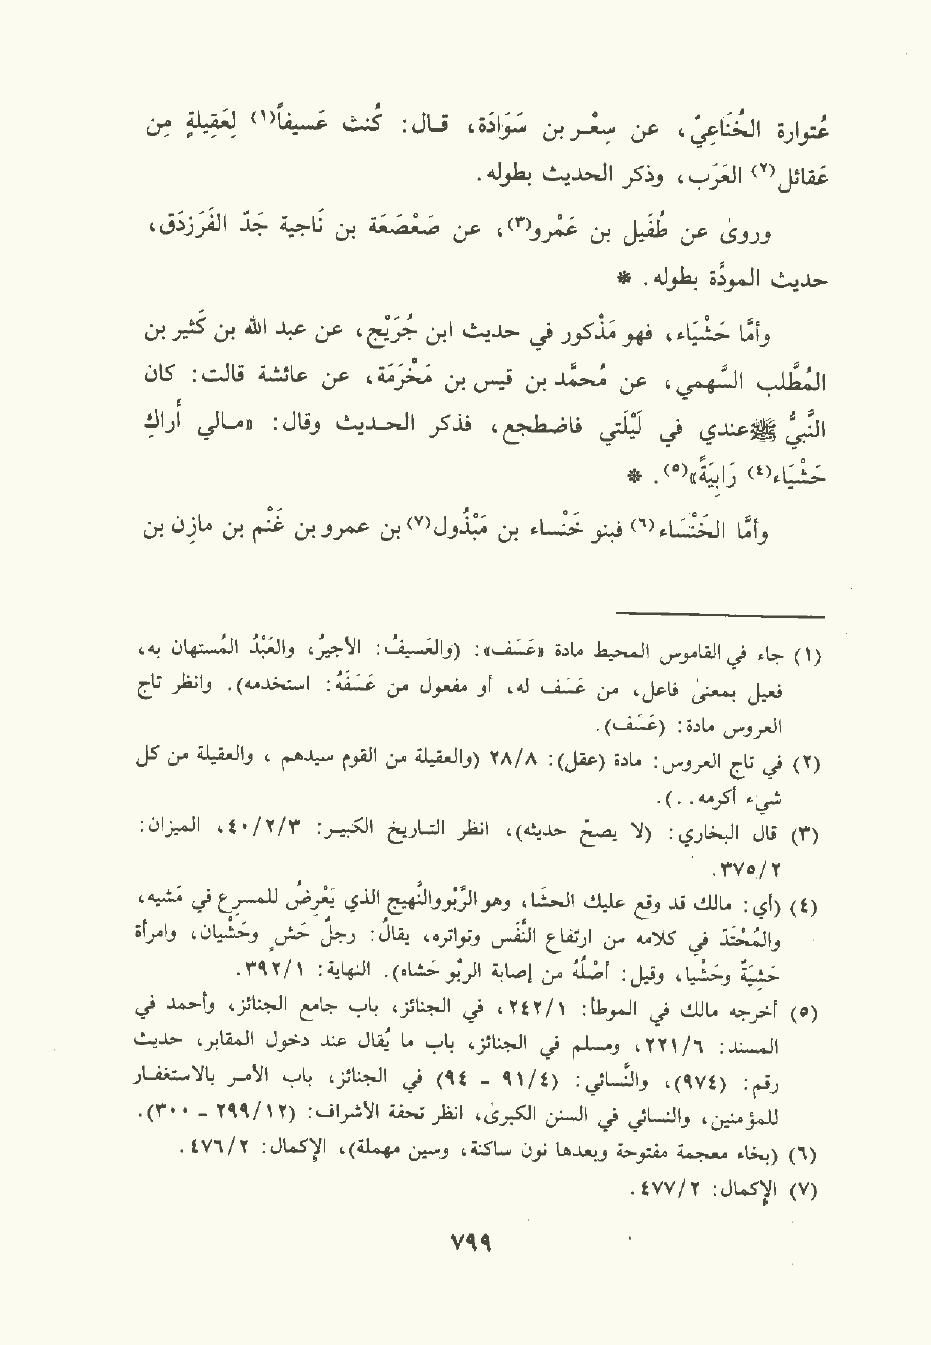 عُتوارة الخُنَاعِيّ، عن سِعْر بن سَوَادَة، قال: كُنتُ عَسيفاً(١) لِعَقِيلةٍ مِن
عَقائل(٢) العَرَب، وذكر الحديث بطوله.
وروىٰ عن طُفَيل بن عَمْرو(٣)، عن صَعْصَعَة بن نَاجية جَدّ الفَرَزدَق،
حديث الموءُدة بطوله. *
وأمَّا حَشْيَاء، فهو مَذْكور في حديث ابن جُرَيْج، عن عبد الله بن كَثير بن
المُطَّلب السَّهمي، عن مُحمَّد بن قيس بن مَخْرَمَة، عن عائشة قالت: كان
النَّبيُّ ﷺ عندي في لَيْلَتي فاضطجع، فذكر الحديث وقال: «مالي أراكِ
حَشْيَاء(٤) رَابِيَةً»(٥). *
وأمَّا الخَنْسَاء(٦) فبنو خَنْساء بن مَبْذُول(٧) بن عمرو بن غَنْم بن مازن بن
(١) جاء في القاموس المحيط مادة «عَسَف»: (والعَسيفُ: الأجيرُ، والعَبْدُ المُستهان به،
فعيل بمعنىٰ فاعل، من عَسَف له، أو مفعول من عَسَفَهُ: استخدمه). وانظر تاج
العروس مادة: (عَسَف).
(٢) في تاج العروس: مادة (عقل): ٢٨/٨ (والعقيلة من القوم سيدهم، والعقيلة من كل
شيء أكرمه..).
(٣) قال البخاري: (لا يصحّ حديثه)، انظر التاريخ الكبير: ٤٠/٢/٣، الميزان:
٣٧٥/٢.
(٤) (أي: مالك قد وقع عليك الحشا، وهو الرَّبْوُ والنَّهيجُ الذي يَعْرِضُ للمسرع في مَشيه،
والمُحْتَدّ في كلامه من ارتفاع النَّفَس وتواتره، يقالُ: رجلٌ حَشٍ وحَشْيان، وامرأة
حَشِيَةٌ وحَشْيا، وقيل: أصْلُهُ من إصابة الربو حَشاه). النهاية: ٣٩٢/١.
(٥) أخرجه مالك في الموطأ: ٢٤٢/١، في الجنائز، باب جامع الجنائز، وأحمد في
المسند: ٢٢١/٦، ومسلم في الجنائز، باب ما يُقال عند دخول المقابر، حديث
رقم: (٩٧٤)، والنَّسائي: (٩١/٤ - ٩٤) في الجنائز، باب الأمر بالاستغفار
للمؤمنين، والنسائي في السنن الكبرىٰ، انظر تحفة الأشراف: (٢٩٩/١٢ - ٣٠٠).
(٦) (بخاء معجمة مفتوحة وبعدها نون ساكنة، وسين مهملة)، الإكمال: ٤٧٦/٢.
(٧) الإكمال: ٤٧٧/٢.
٧٩٩